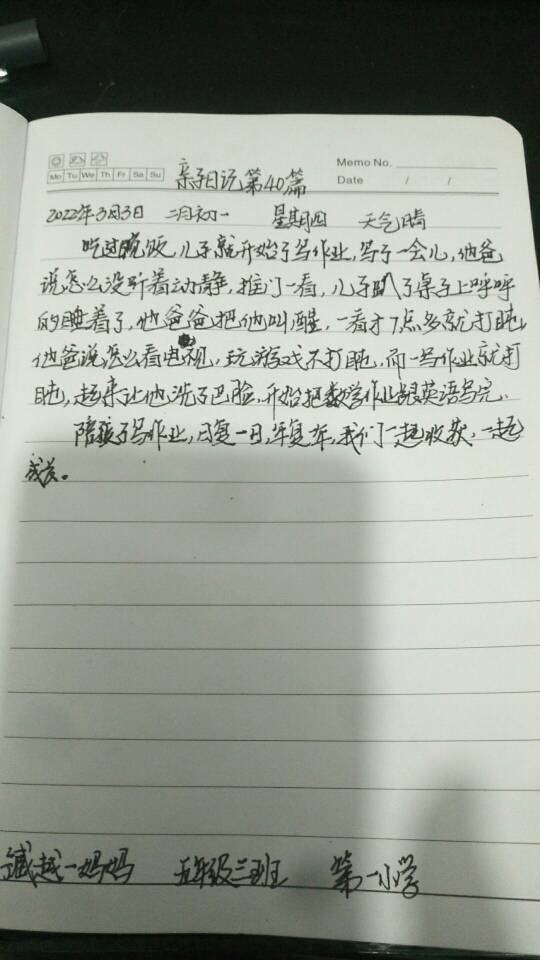 Memo No.
Mo Tu We Th Fr Sa Su
亲子日记第40篇
Date / /
2022年3月3日 二月初一 星期四 天气晴
吃过晚饭,儿子就开始了写作业,写了一会儿,他爸
说怎么没听着动静,推门一看,儿子趴了桌子上呼呼
的睡着了,他爸爸把他叫醒,一看才7点多就打盹,
他爸说怎么看电视,玩游戏不打盹,而一写作业就打
盹,起来让他洗了巴脸,开始把数学作业跟英语写完.
陪孩子写作业,日复一日,年复年,我们一起收获,一起
成长。
越一妈妈 五年级三班 第一小学